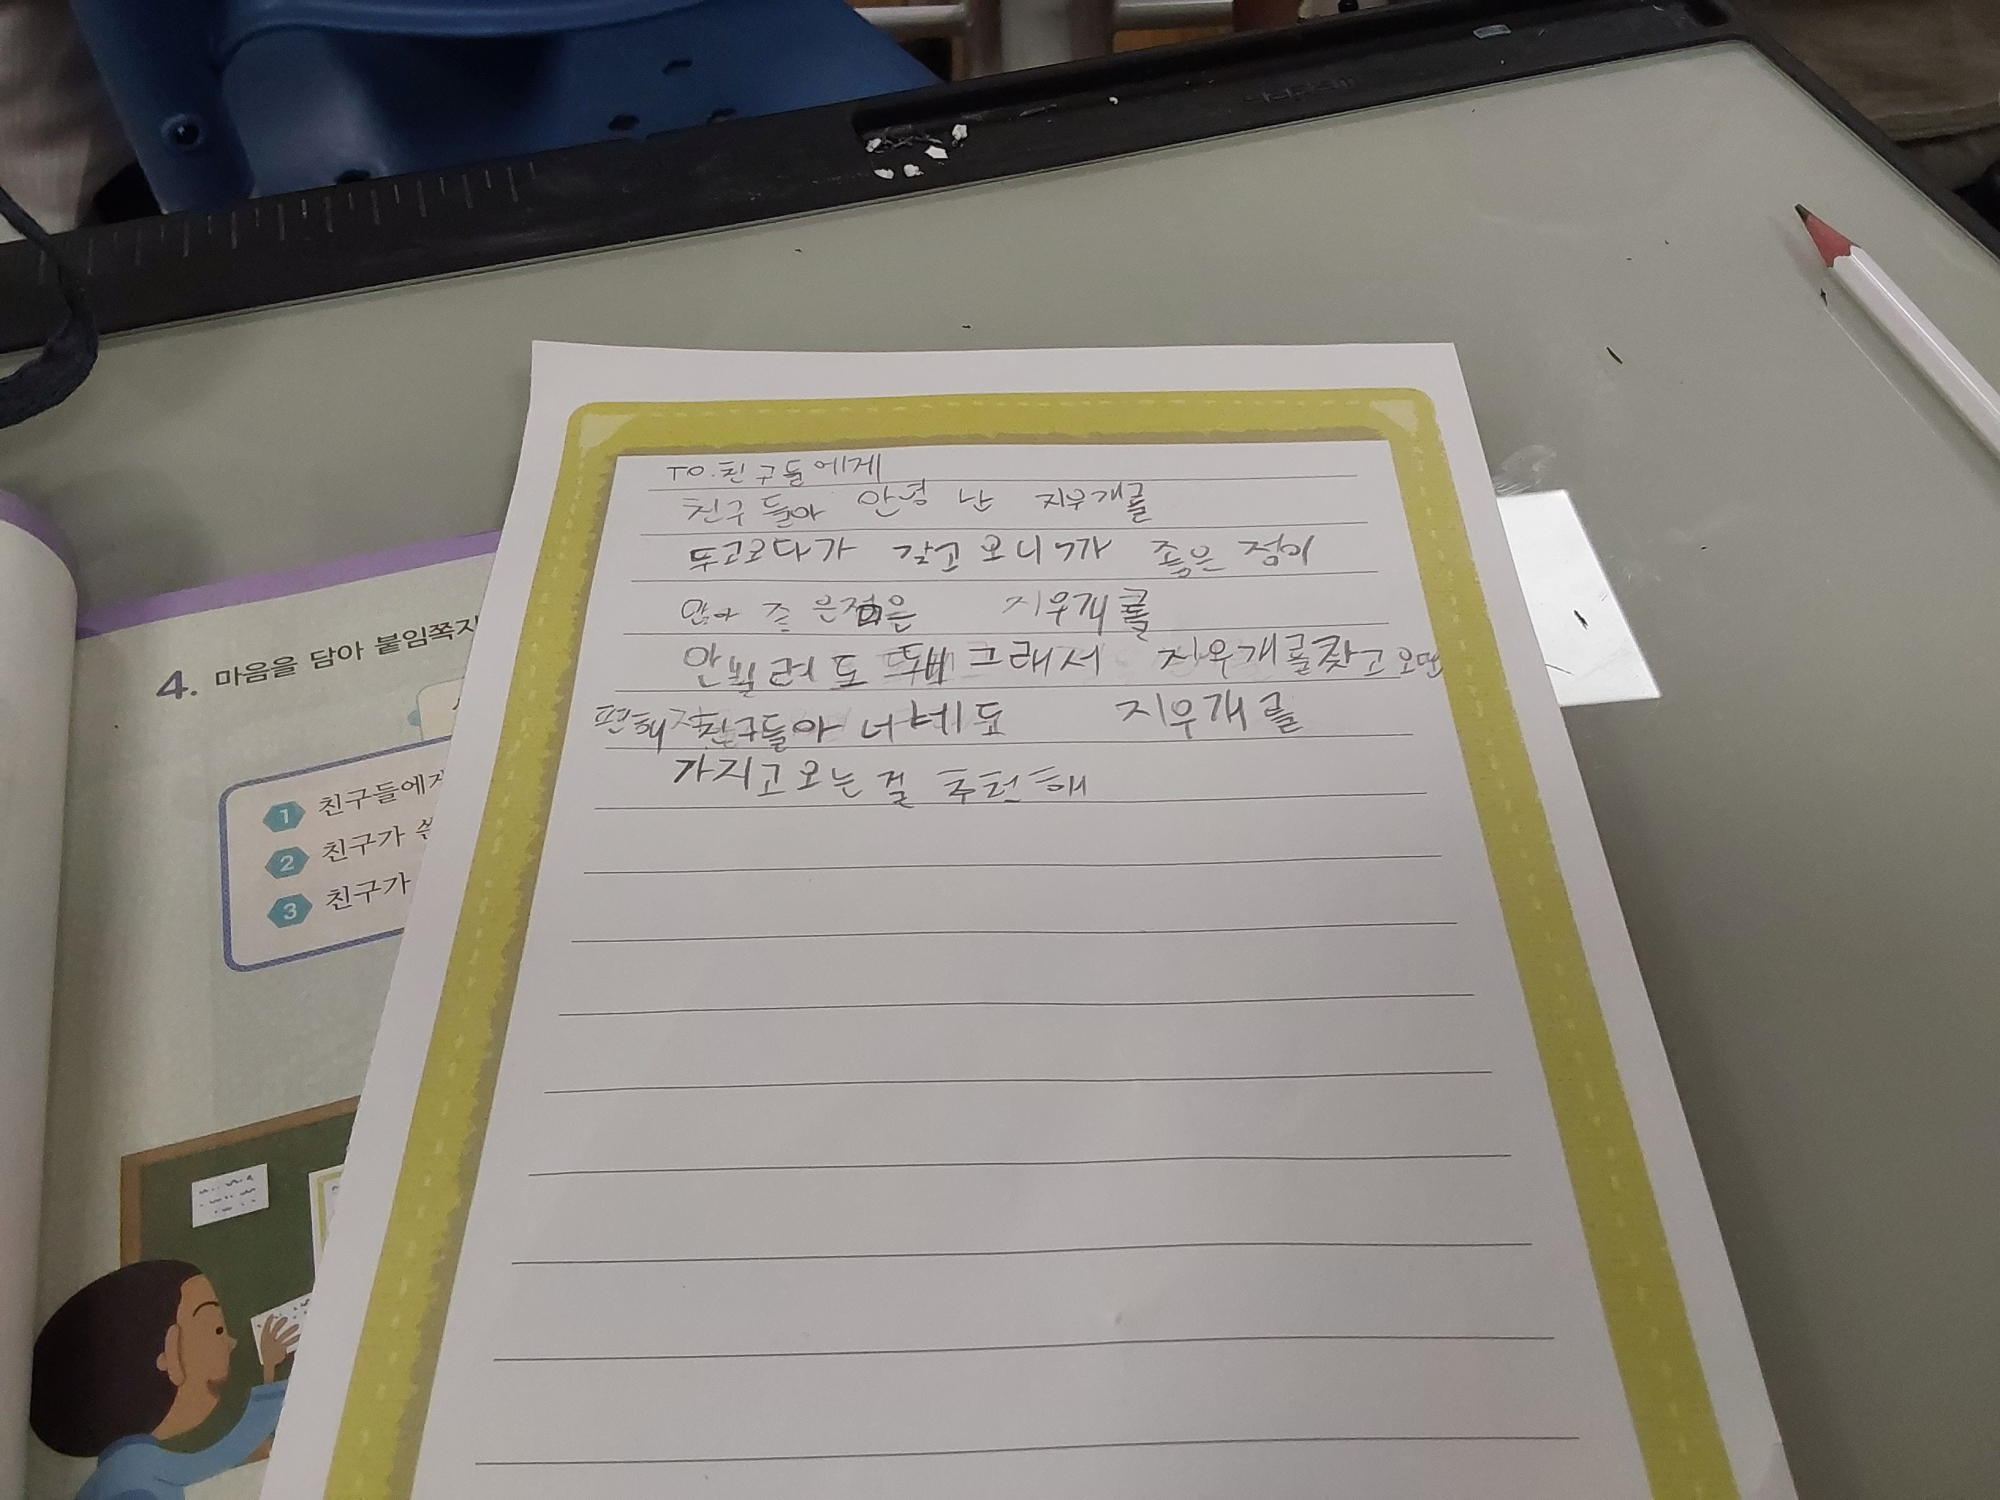 TO.친구들에게
친구들아 안녕 난 지우개를
갖고 오니까 좋은 점이
지우개를
안빌려도 그래서 지우개를찾고 오면
편해 친구들아 너네도 지우개를
가지고오는걸 추천해
4. 마음을 담아 붙임쪽지
1 친구들에게
2 친구가 쓴
3 친구가